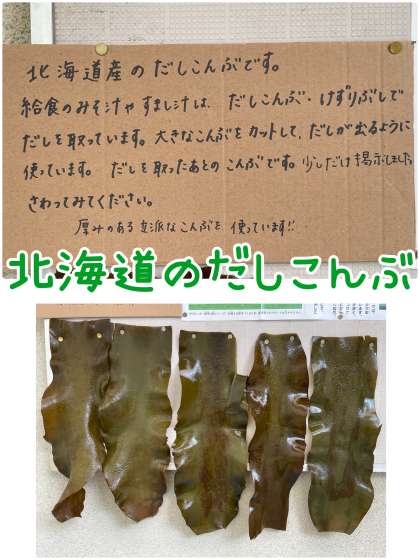 北海道産のだしこんぶです。
給食のみそ汁やすまし汁は、だしこんぶ・けずりぶしで
だしを取っています。大きなこんぶをカットして、だしが出るように
使っています。だしを取ったあとのこんぶです。少しだけ掲示しました
さわってみてください。
厚みのある立派なこんぶを使っています!!
北海道のだしこんぶ